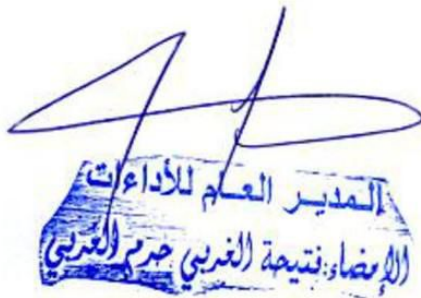 المدير العام للأداءات
الإمضاء: فتيحة الغربي حرم الغربي